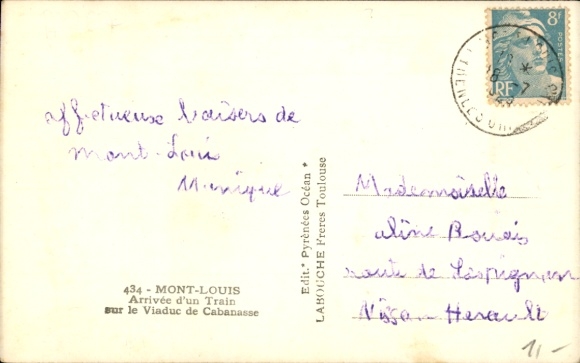 affetueuse baisers de
mont-Louis
Munique
434 - MONT-LOUIS
Arrivée d'un Train
sur le Viaduc de Cabanasse
Edit.* Pyrénées Océan *
LABOUCHE Freres Toulouse
8F
POSTES
RF
18
7
Mademoiselle
aline Rouais
route de Lespignan
Nissan Herault
1,-